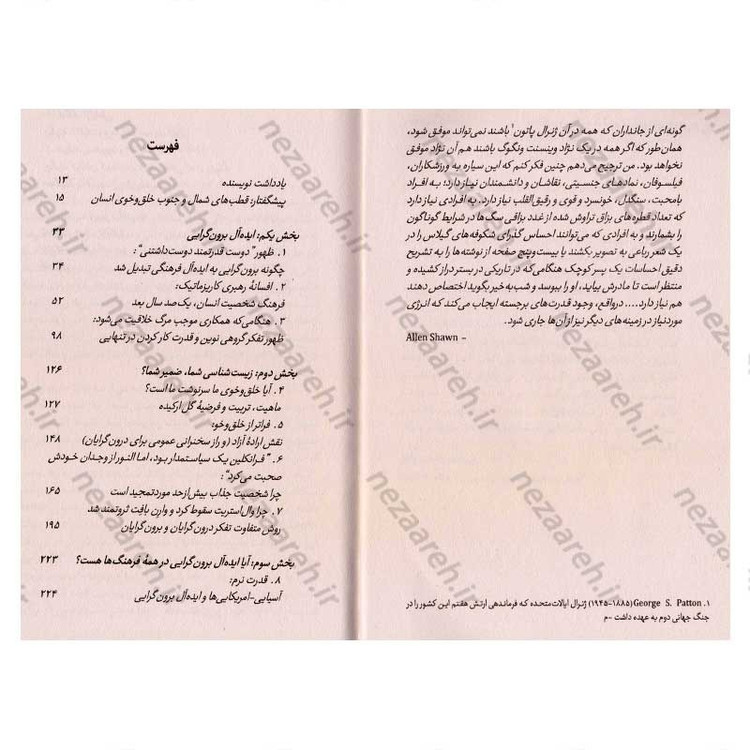 گونه‌ای از جانداران که همه در آن ژنرال پاتون۱ باشند نمی‌تواند موفق شود،
همان‌طور که اگر همه در یک نژاد وینسنت ونگوگ باشند هم آن نژاد موفق
نخواهد بود. من ترجیح می‌دهم چنین فکر کنم که این سیاره به ورزشکاران،
فیلسوفان، نمادهای جنسیتی، نقاشان و دانشمندان نیاز دارد؛ به افراد
بامحبت، سنگدل، خونسرد و قوی و رقیق‌القلب نیاز دارد. به افرادی نیاز دارد
که تعداد قطره‌های بزاق تراوش شده از غدد بزاقی سگ‌ها در شرایط گوناگون
را بشمارند و به افرادی که می‌توانند احساس گذرای شکوفه‌های گیلاس را در
یک شعر رباعی به تصویر بکشند یا بیست‌وپنج صفحه از نوشته‌ها را به تشریح
دقیق احساسات یک پسر کوچک هنگامی‌که در تاریکی در بستر دراز کشیده و
منتظر است تا مادرش بیاید، او را ببوسد و شب‌به‌خیر بگوید اختصاص دهند
هم نیاز دارد.... درواقع، وجود قدرت‌های برجسته ایجاب می‌کند که انرژی
موردنیاز در زمینه‌های دیگر نیز از آن‌ها جاری شود.
Allen Shawn –
۱. George S. Patton (۱۸۸۵-۱۹۴۵) ژنرال ایالات‌متحده که فرماندهی ارتش هفتم این کشور را در
جنگ جهانی دوم به عهده داشت -م
فهرست
یادداشت نویسنده ۱۳
پیشگفتار: قطب‌های شمال و جنوب خلق‌وخوی انسان ۱۵
بخش یکم: ایده‌آل برون‌گرایی ۳۳
۱. ظهور "دوست قدرتمند دوست‌داشتنی":
چگونه برون‌گرایی به ایده‌آل فرهنگی تبدیل شد ۳۴
۲. افسانهٔ رهبری کاریزماتیک:
فرهنگ شخصیت انسان، یک‌صد سال بعد ۵۲
۳. هنگامی‌که همکاری موجب مرگ خلاقیت می‌شود:
ظهور تفکر گروهی نوین و قدرت کار کردن در تنهایی ۹۸
بخش دوم: زیست‌شناسی شما، ضمیر شما؟ ۱۲۶
۴. آیا خلق‌وخوی ما سرنوشت ما است؟
ماهیت، تربیت و فرضیهٔ گل ارکیده ۱۲۷
۵. فراتر از خلق‌وخو:
نقش ارادهٔ آزاد (و راز سخنرانی عمومی برای درون‌گرایان) ۱۴۸
۶. "فرانکلین یک سیاستمدار بود، اما النور از وجدان خودش
صحبت می‌کرد":
چرا شخصیت جذاب بیش‌ازحد موردتمجید است ۱۶۵
۷. چرا وال‌استریت سقوط کرد و وارن بافت ثروتمند شد
روش متفاوت تفکر درون‌گرایان و برون‌گرایان ۱۹۵
بخش سوم: آیا ایده‌آل برون‌گرایی در همهٔ فرهنگ‌ها هست؟ ۲۲۳
۸. قدرت نرم:
آسیایی-امریکایی‌ها و ایده‌آل برون‌گرایی ۲۲۴
nezaareh.ir
nezaareh.ir
nezaareh.ir
nezaareh.ir
nezaareh.ir
nezaareh.ir
nezaareh.ir
nezaareh.ir